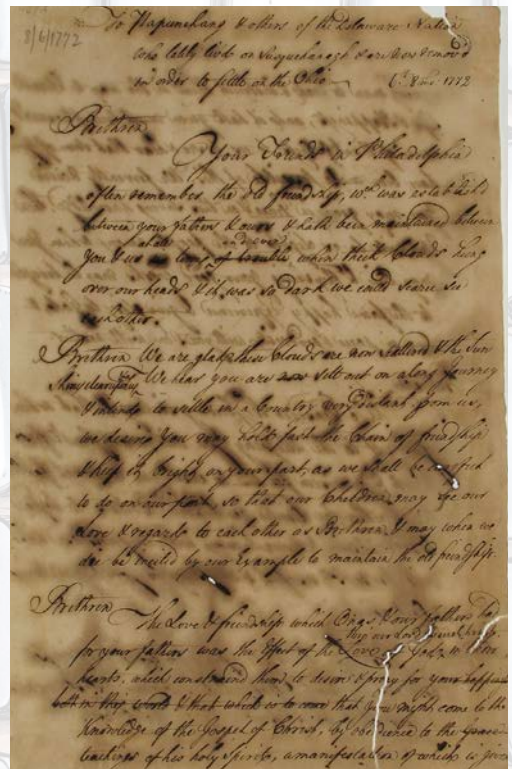 8/6/1772
To Papunehang & others of the Delaware Nation
who lately lived on Susquehanagh & are now removed
in order to settle on the Ohio 6th 8 mo. 1772
Brethren
Your Friends in Philadelphia
often remember the old friendship, wch was establish'd
between your fathers & ours & hath been maintained between
you & us in times of trouble when thick Clouds hung
over our heads & it was so dark we could scarce see
each other.
Brethren We are glad these Clouds are now scattered & the Sun
Shines clear. We hear you are sett out on a long Journey
& intend to settle in a Country very distant from us,
we desire you may hold fast the Chain of friendship
& keep it bright on your part, as we shall be careful
to do on our part, so that our Children may see our
Love & regards to each other as Brethren & may when we
die be incited by our Example to maintain the old friendship.
Brethren
The Love & friendship which Onas & our fathers had
for your fathers was the Effect of the Love of God, in their
hearts, which constrained them to desire & pray for your happiness
both in this world & that which is to come that you might come to the
Knowledge of the Gospel of Christ, by obedience to the
teachings of his holy Spirit, a manifestation of which is given